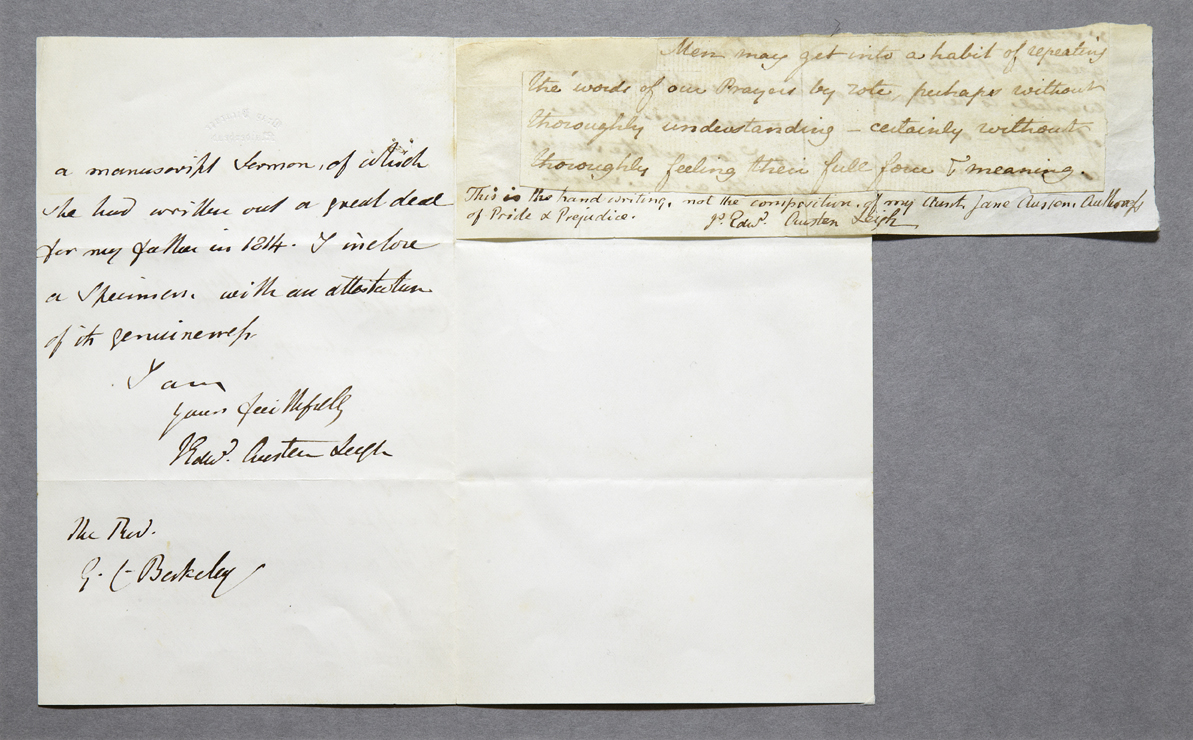 a manuscript Sermon, of which
she had written out a great deal
for my father in 1814. I inclose
a specimen, with an attestation
of its genuineness.
I am
yours faithfully
J Edwd. Austen Leigh
The Revd.
G. C. Berkeley
Men may get into a habit of repeating
the words of our Prayers by rote, perhaps without
thoroughly understanding – certainly without
thoroughly feeling their full force & meaning.
This is the hand writing, not the composition, of my Aunt, Jane Austen, Authoress
of Pride & Prejudice. Js. Edwd. Austen Leigh